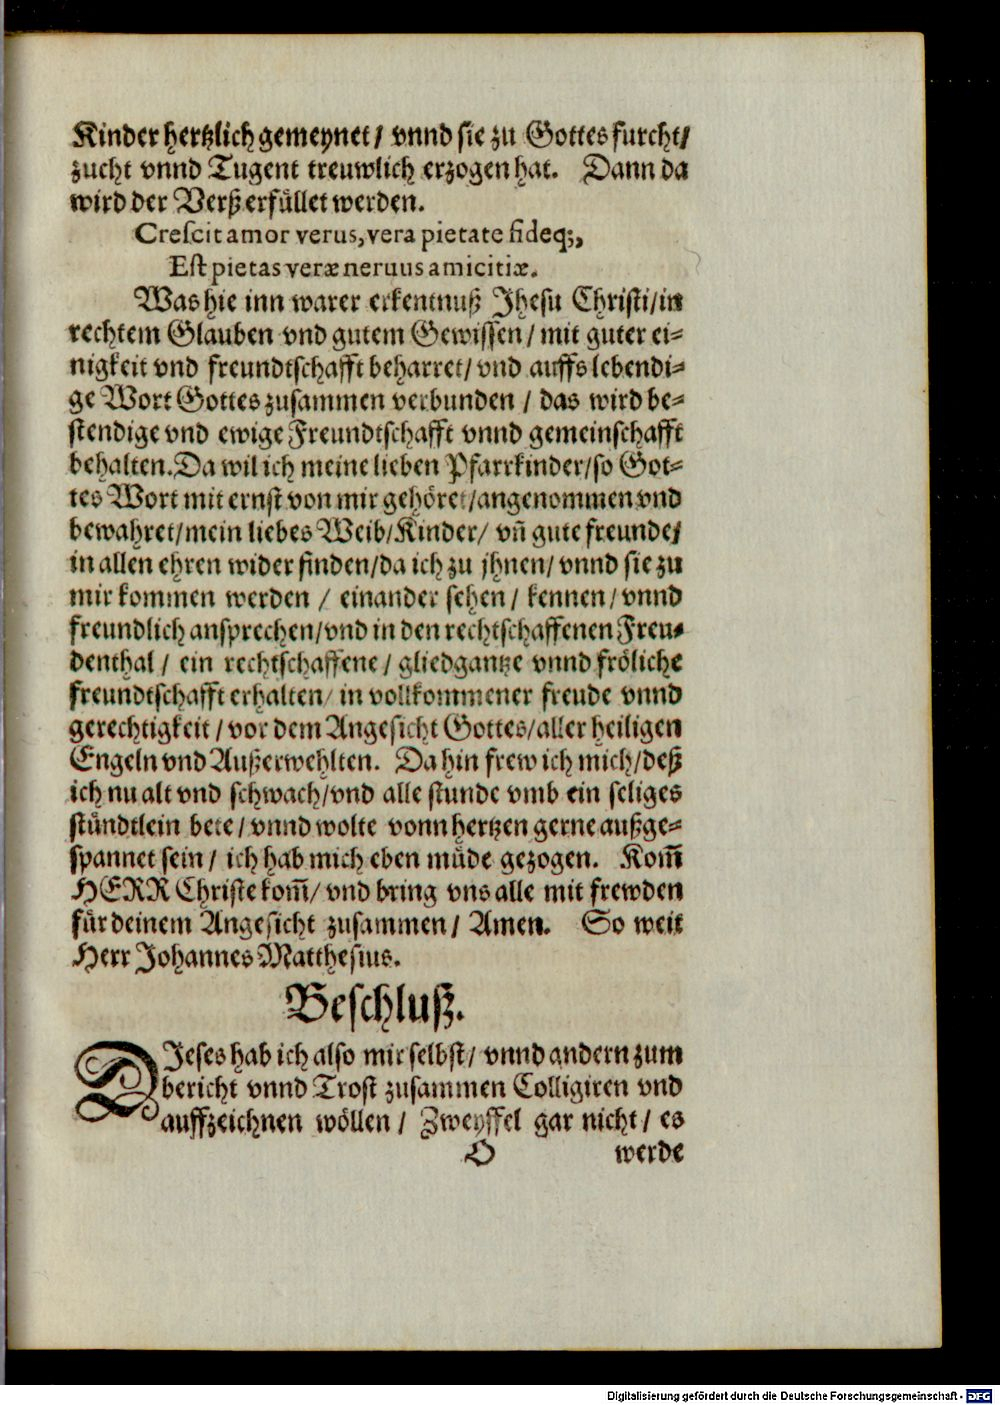 Kinder hertzlich gemeynet / vnnd sie zu Gottes furcht /
zucht vnnd Tugent treuwlich erzogen hat. Dann da
wird der Verß erfüllet werden.
Crescit amor verus, vera pietate fideq;,
Est pietas veræ neruus amicitiæ.
Was hie inn warer erkentnuß Jhesu Christi / in
rechtem Glauben vnd gutem Gewissen / mit guter ei-
nigkeit vnd freundtschafft beharret / vnd auffs lebendi-
ge Wort Gottes zusammen verbunden / das wird be-
stendige vnd ewige Freundtschafft vnnd gemeinschafft
behalten. Da wil ich meine lieben Pfarrkinder / so Got-
tes Wort mit ernst von mir gehöret / angenommen vnd
bewahret / mein liebes Weib / Kinder / vñ gute freunde /
in allen ehren wider finden / da ich zu jhnen / vnnd sie zu
mir kommen werden / einander sehen / kennen / vnnd
freundlich ansprechen / vnd in den rechtschaffenen Freu-
denthal / ein rechtschaffene / gliedgantze vnnd fröliche
freundtschafft erhalten / in vollkommener freude vnnd
gerechtigkeit / vor dem Angesicht Gottes / aller heiligen
Engeln vnd Außerwehlten. Da hin frew ich mich / deß
ich nu alt vnd schwach / vnd alle stunde vmb ein seliges
stündtlein bete / vnnd wolte vonn hertzen gerne außge-
spannet sein / ich hab mich eben müde gezogen. Kom̃
HERR Christe kom̃ / vnd bring vns alle mit frewden
für deinem Angesicht zusammen / Amen. So weit
Herr Johannes Matthesius.
Beschluß.
DJeses hab ich also mir selbst / vnnd andern zum
bericht vnnd Trost zusammen Colligiren vnd
auffzeichnen wöllen / Zweyffel gar nicht / es
O werde
Digitalisierung gefördert durch die Deutsche Forschungsgemeinschaft - DFG